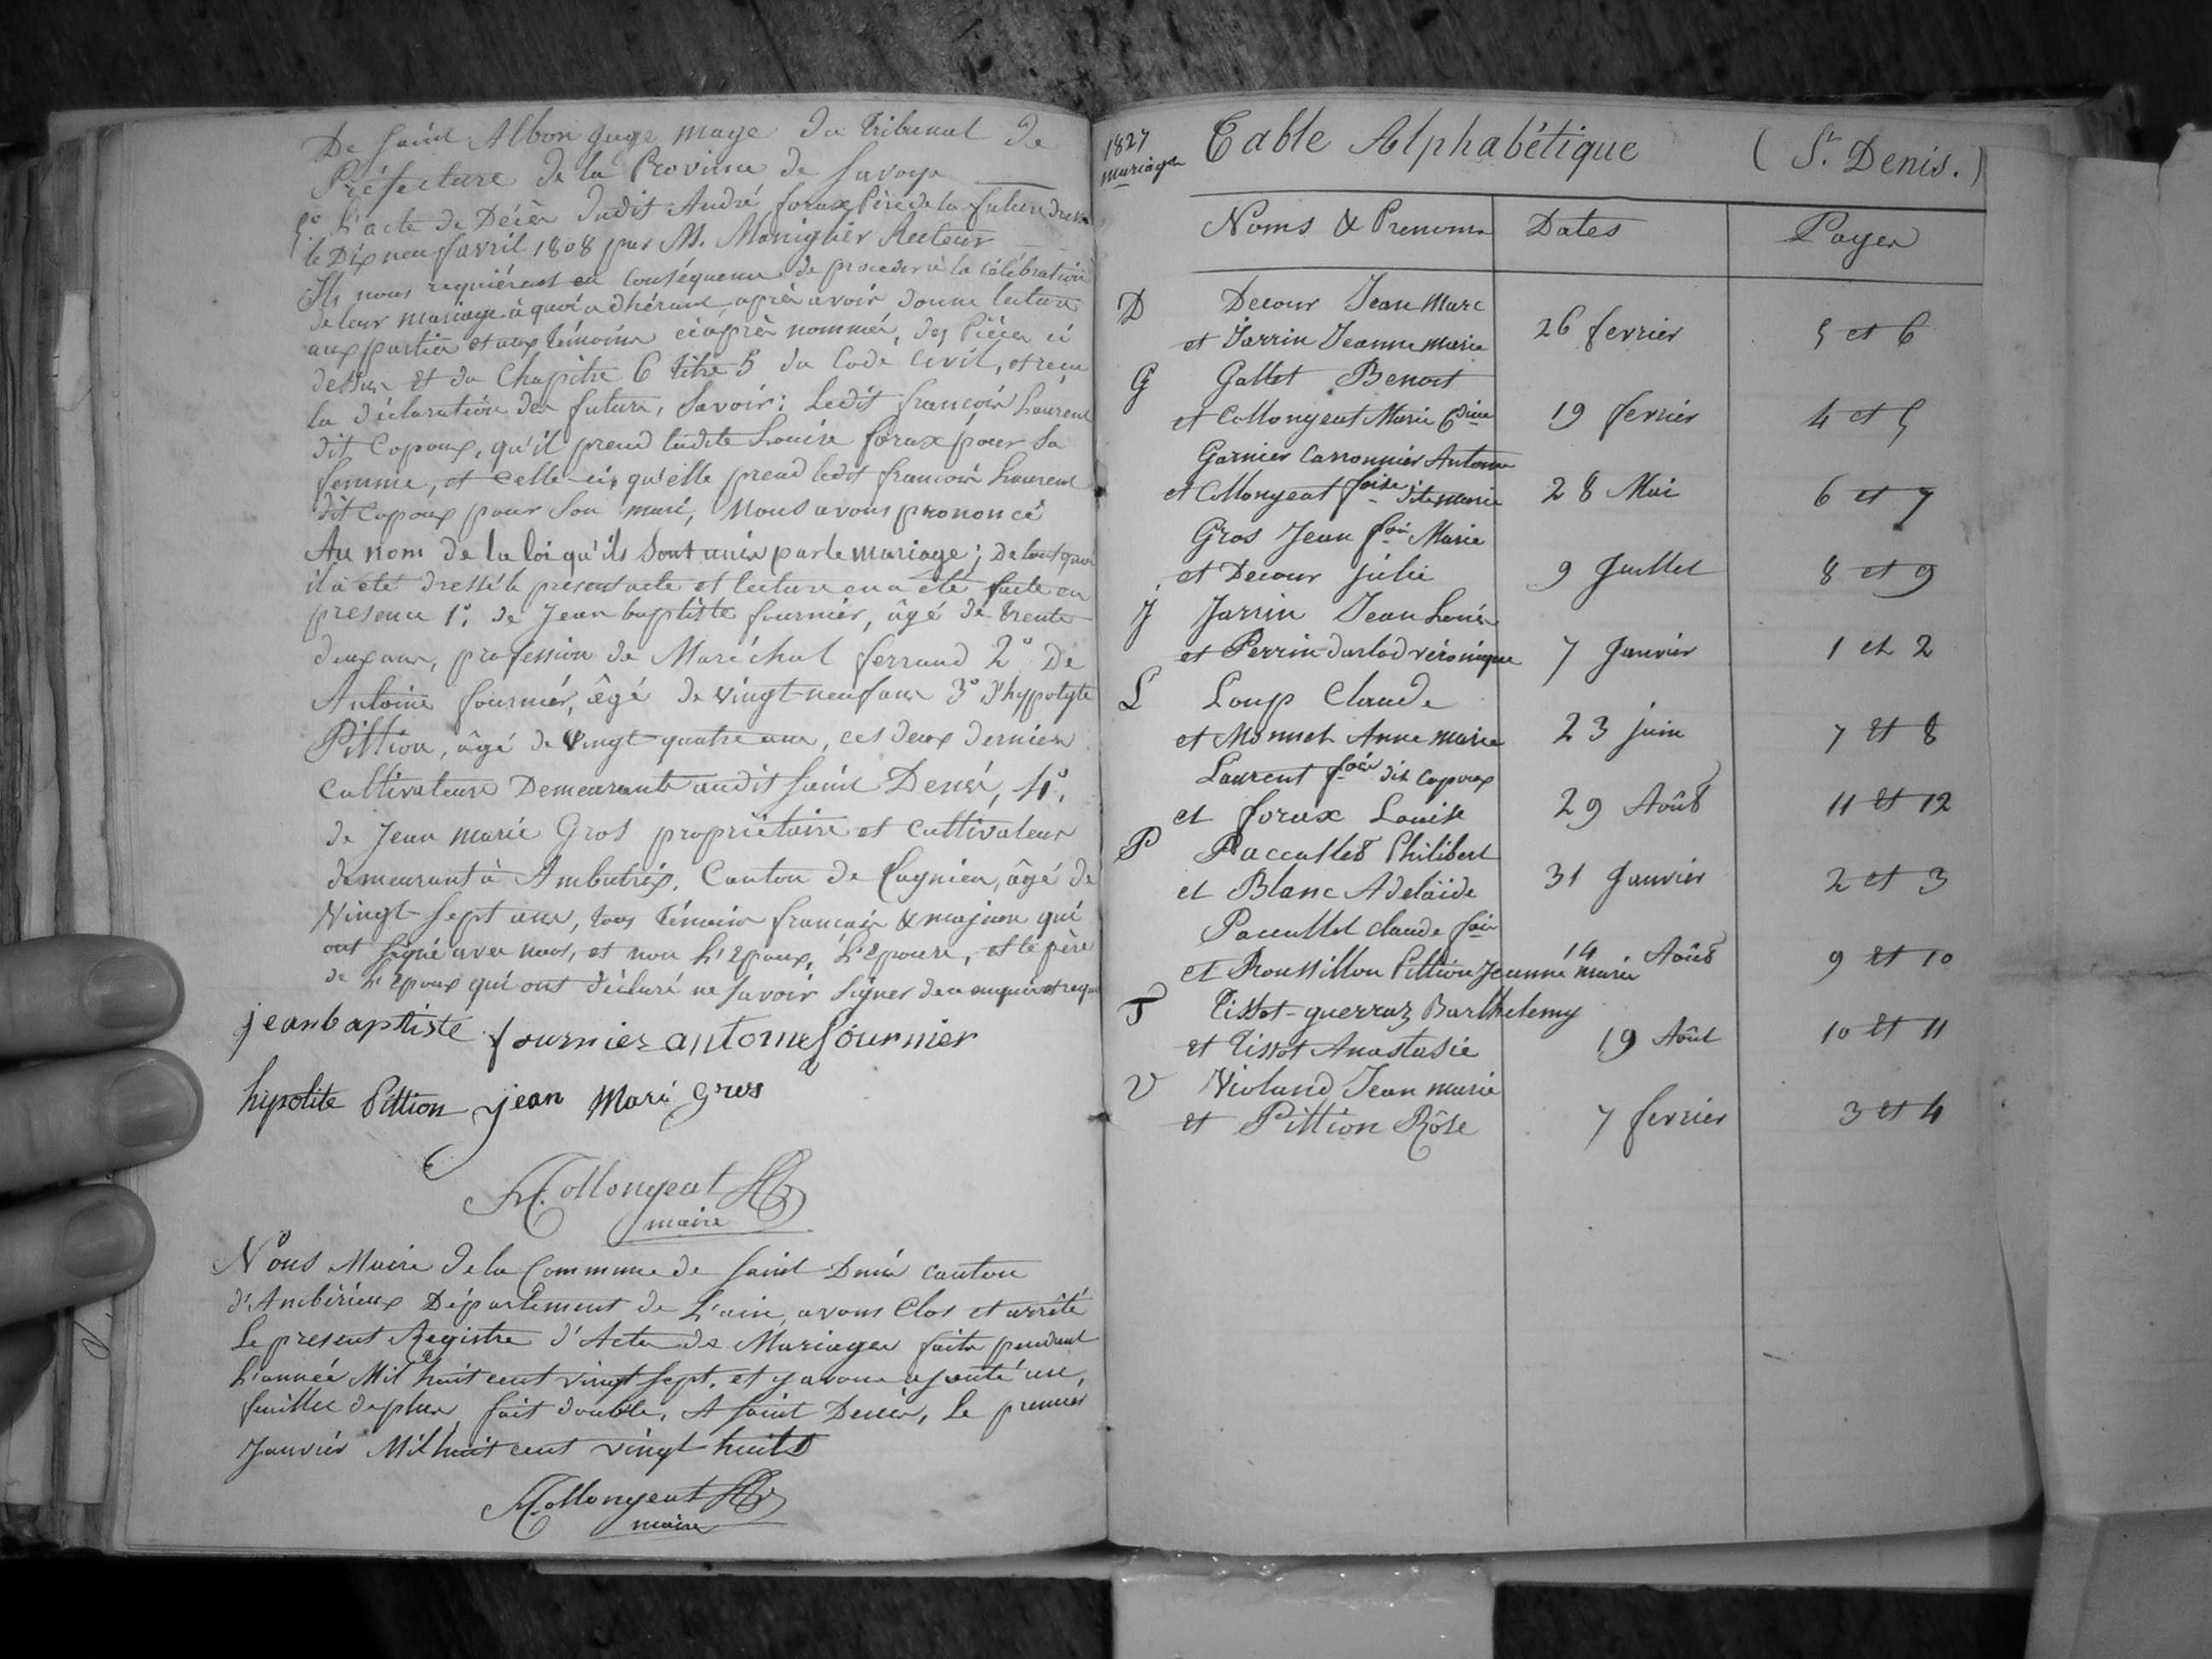 De Saint Albon Juge Mage du Tribunal de
Préfecture de la Province de Savoye
L'acte de Décès dudit André foraxe Père de la future dressé
le Dix neuf avril 1808 par M. Monighier Recteur
Ils nous requièrent en conséquence de proceder à la célébration
de leur mariage à quoi adhérant, après avoir donné lecture
aux parties et aux témoins ci après nommés, des Pièces ci
dessus et du Chapitre 6 titre 5 du Code Civil, et reçu
la déclaration des futurs, Savoir; Ledit françois Laurent
dit Copoux, qu'il prend ladite Louise forax pour Sa
femme, et celle-ci, qu'elle prend ledit francois Laurent
dit Copoux pour Son mari, Nous avons prononcé
Au nom de la loi qu'ils Sont unis par le mariage; De tout quoi
il a été dressé le présent acte et lecture en a été faite en
presence 1°. de Jean baptiste fournier, âgé de trente
deux ans, profession de Maréchal ferrand 2° De
Antoine fournier, âgé de vingt-neuf ans 3° d'hypolyte
Pittion, âgé de vingt quatre ans, ces deux derniers
Cultivateurs Demeurants audit Saint Denis, 4°.
de Jean marie Gros propriétaire et Cultivateur
demeurant à Ambutrix, Canton de Lagnieu, âgé de
Vingt-Sept ans, tous témoins francais & majeurs qui
ont Signé avec nous, et non L'Epoux, L'Epouse, et le père
de L'Epoux qui ont déclaré ne Savoir Signer de ce enquis et requis
jeanbaptiste fournier antoine fournier
hipolite Pittion jean Mari gros
Collongeat
maire
Nous Maire de la Commune de Saint Denis canton
d'Ambérieux Département de L'ain, avons Clos et arrêté
Le present Registre d'Actes de Mariages faits pendant
L'année Mil huit cent vingt Sept. et y avons ajouté une,
feuille de plus, fait double, A Saint Denis, Le premier
Janvier Mil huit cent vingt huit
Collongeat
maire
1827
mariages
Table Alphabétique (St. Denis.)
Noms & Prenoms Dates Pages
D Decour Jean Marc
et Jarrin Jeanne marie 26 fevrier 5 et 6
G Gallet Benoit
et Collongeat Marie 19 fevrier 4 et 5
Garnier Carronnier Antoine
et Collongeat foise dite marie 28 Mai 6 et 7
Gros Jean fois Marie
et Decour julie 9 Juillet 8 et 9
J Jarrin Jean Louis
et Perrin darlod véronique 7 Janvier 1 et 2
L Loup Claude
et Monnet Anne marie 23 juin 7 et 8
Laurent fois dit Copoux
et forax Louise 29 Août 11 et 12
P Paccallet Philibert
et Blanc Adelaïde 31 Janvier 2 et 3
Paccallet claude fois
et Roussillon Pittion Jeanne marie 14 Août 9 et 10
T Tissot-guerraz Barthelemy
et Tissot Anastasie 19 Août 10 et 11
V Violand Jean marie
et Pittion Rôse 7 fevrier 3 et 4